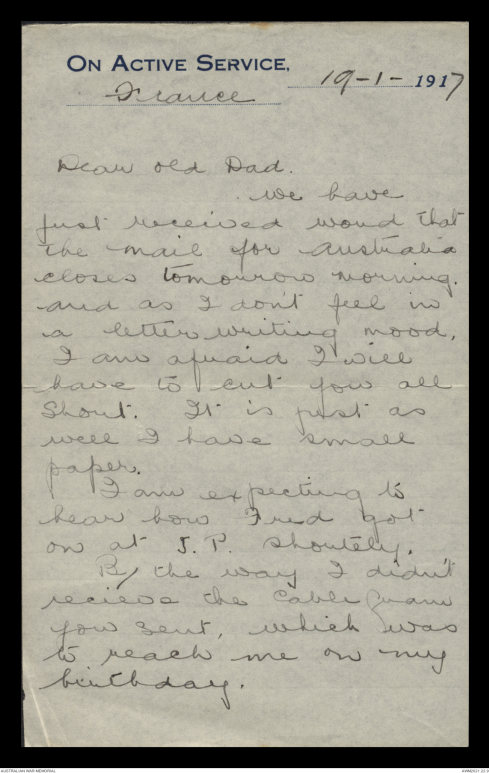 ON ACTIVE SERVICE,
19-1-1917
France
Dear old Dad.
We have
just received word that
the mail for Australia
closes tomorrow morning.
and as I don't feel in
a letter writing mood,
I am afraid I will
have to cut you all
short. It is just as
well I have small
paper.
I am expecting to
hear how Fred got
on at J.P. shortely.
By the way I didn't
recieve the Cable gram
you sent, which was
to reach me on my
birthday.
AUSTRALIAN WAR MEMORIAL